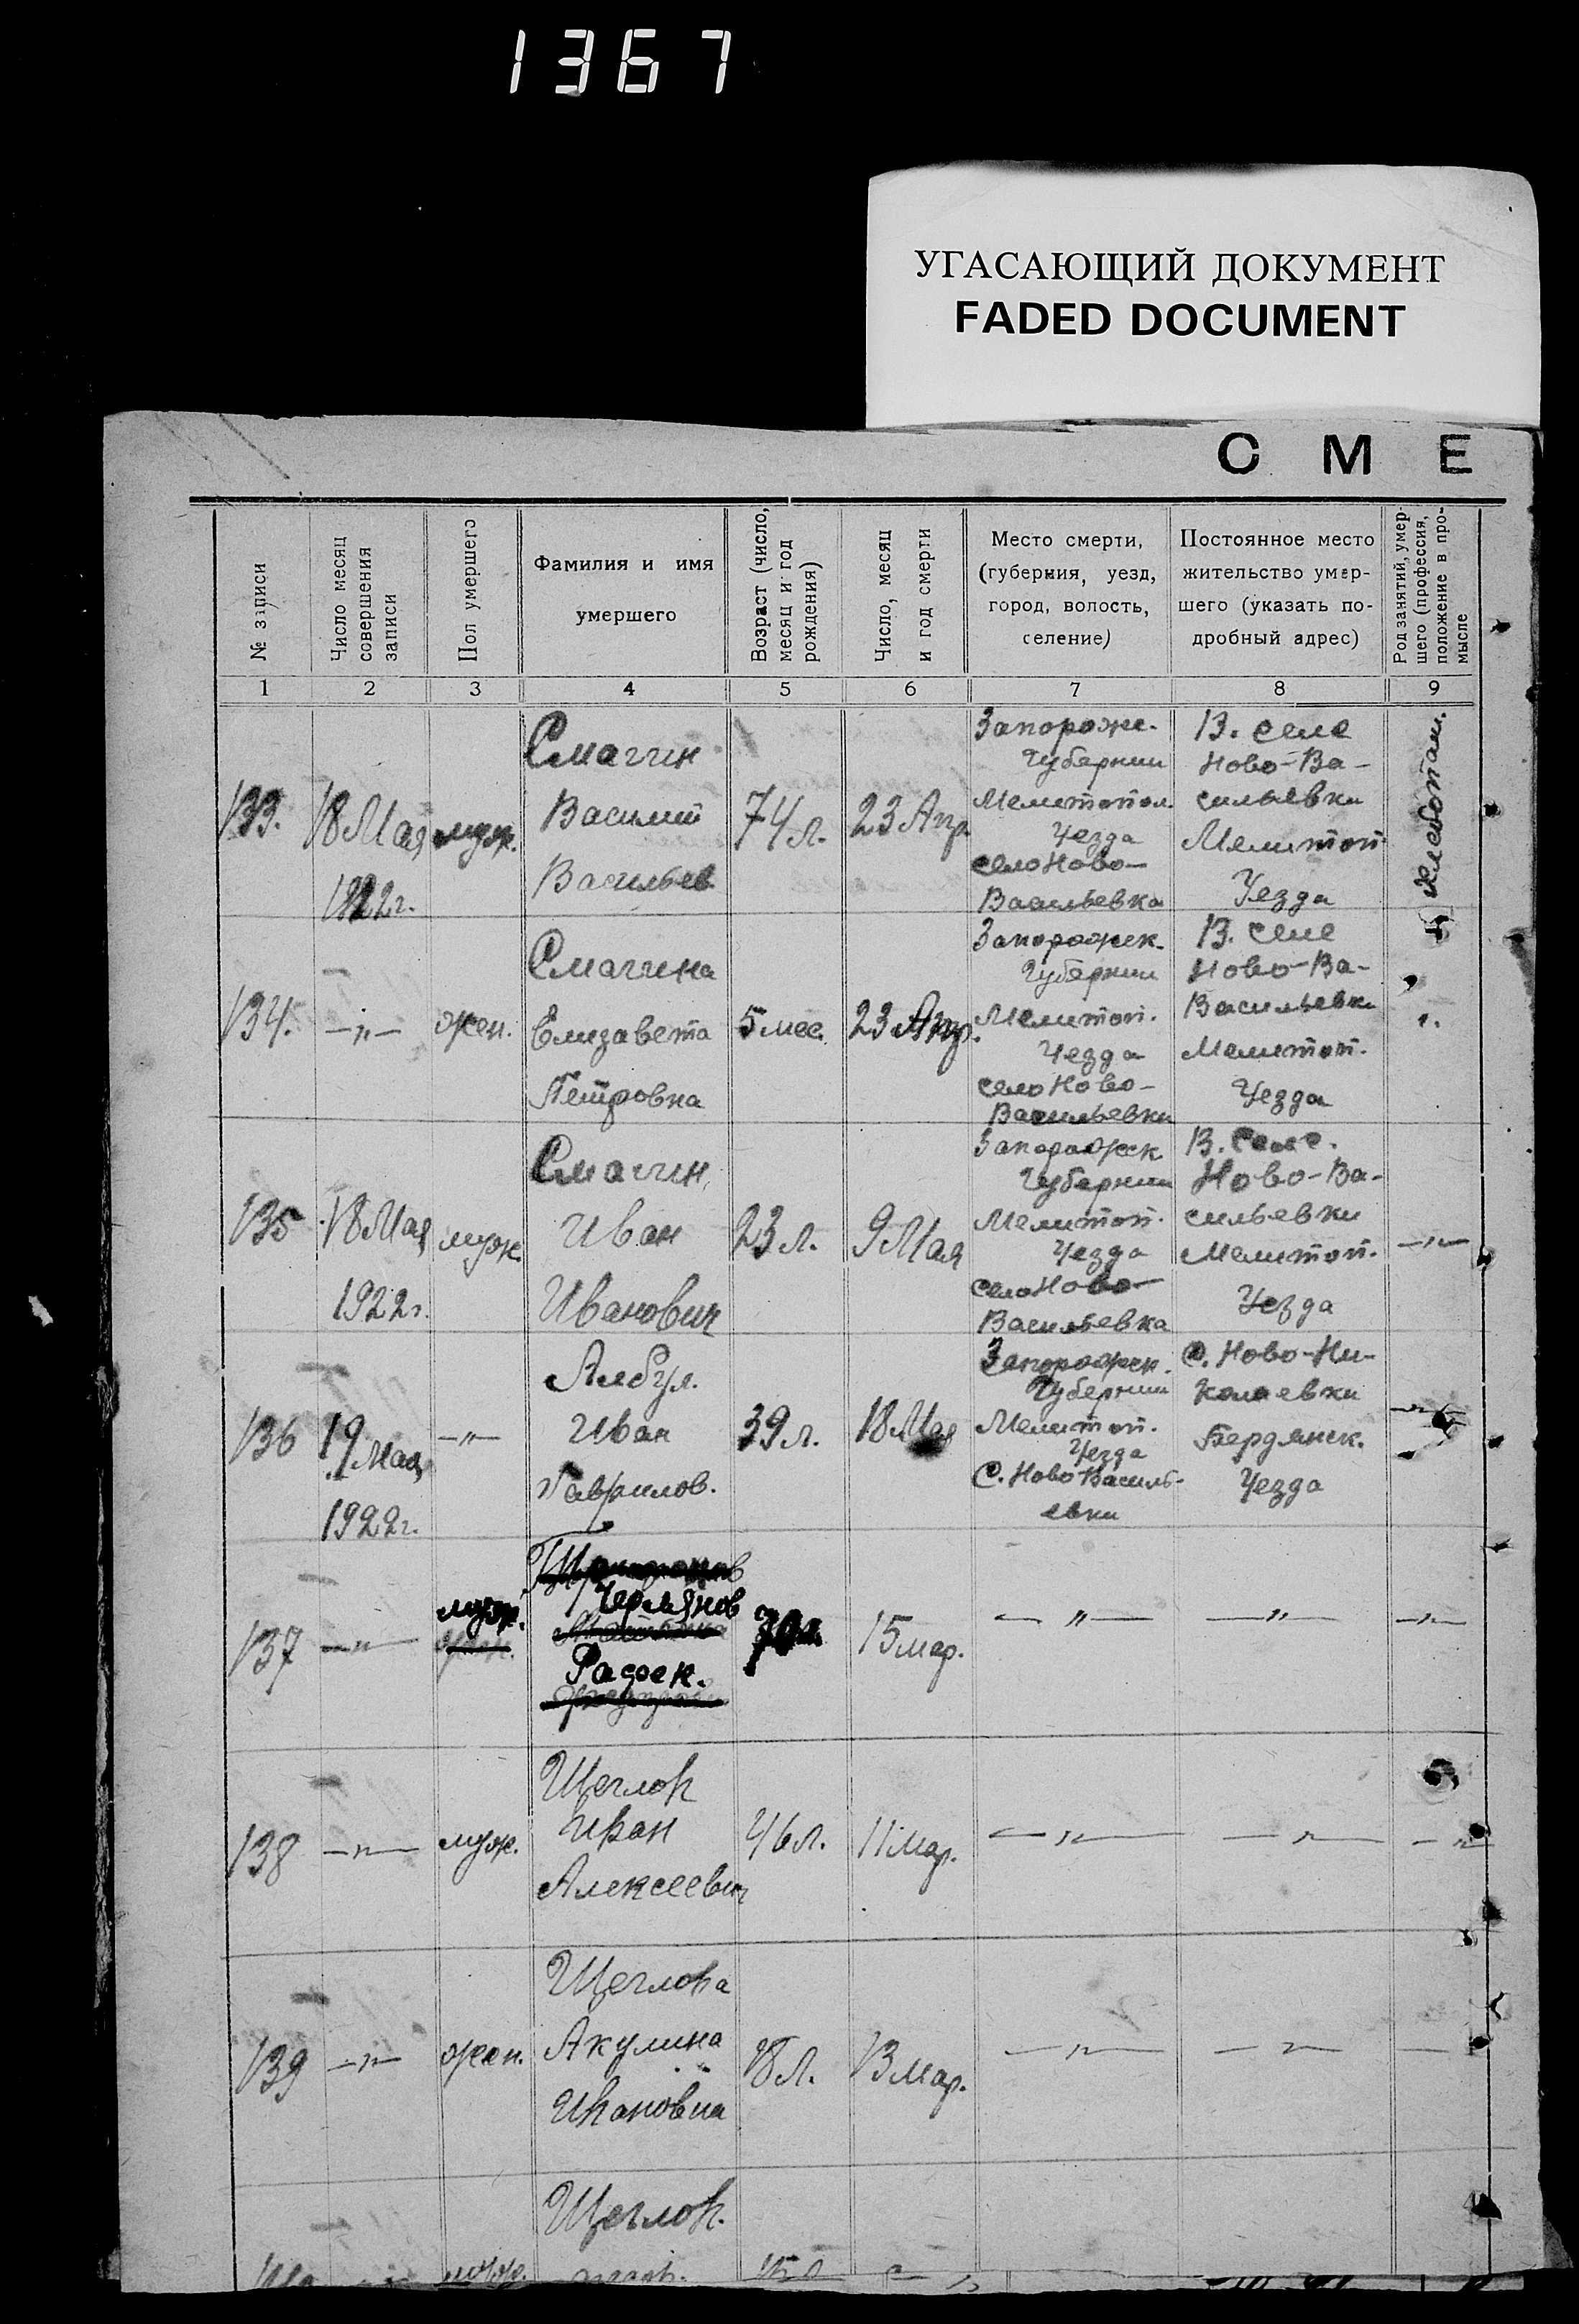 1367
УГАСАЮЩИЙ ДОКУМЕНТ
FADED DOCUMENT
С М Е
№ записи
Число месяц
совершения
записи
Пол умершего
Фамилия и имя
умершего
Возраст (число,
месяц и год
рождения)
Число, месяц
и год смерти
Место смерти,
(губерния, уезд,
город, волость,
селение)
Постоянное место
жительство умер-
шего (указать по-
дробный адрес)
Род занятий, умер-
шего (профессия,
положение в про-
мысле
1 2 3 4 5 6 7 8 9
133.
18 Мая
1922г.
муж.
Смагин
Василий
Васильев
74 л.
23 Апр.
Запороже.
Губернии
Мелитопол.
Уезда
село Ново-
Васильевка
В. селе
Ново-Ва-
сильевки
Мелитоп.
Уезда
Хлебопаш.
134.
—"—
жен.
Смагина
Елизавета
Петровна
5 мес.
23 Апр.
Запорожск.
Губернии
Мелитоп.
Уезда
село Ново-
Васильевки
В. селе
Ново-Ва-
Васильевки
Мелитоп.
Уезда
".
135
18 Мая
1922г.
муж.
Смагин
Иван
Иванович
23 л.
9 Мая
Запорожск
Губернии
Мелитоп.
Уезда
село Ново-
Васильевка
В. селе.
Ново-Ва-
сильевки
Мелитоп.
Уезда
—"—
136
19 Мая
1922г.
—"—
Албул.
Иван
Гаврилов.
39 л.
18 Мая
Запорожск.
Губернии
Мелитоп.
Уезда
С. Ново Василь-
евки
с. Ново-Ни-
колаевки
Бердянск.
Уезда
—"—
137
—"—
муж.
жен.
Чермянов
15 мар.
—"—
—"—
—"—
138
—"—
муж.
Щеглов
Иван
Алексеевич
46 л.
11 мар.
—"—
—"—
—"—
139
—"—
жен.
Щеглова
Акулина
Ивановна
18 л.
13 мар.
—"—
—"—
—
Щеглов.
муж.